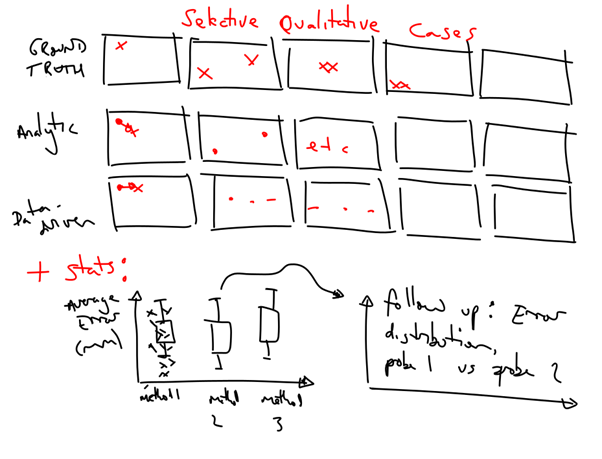 Selective Qualitative Cases
GROUND
TRUTH
Analytic
etc
Data-
driven
+ stats:
Average
Error
(mm)
method 1
method
2
method
3
follow up: Error
distribution,
probe 1 vs probe 2